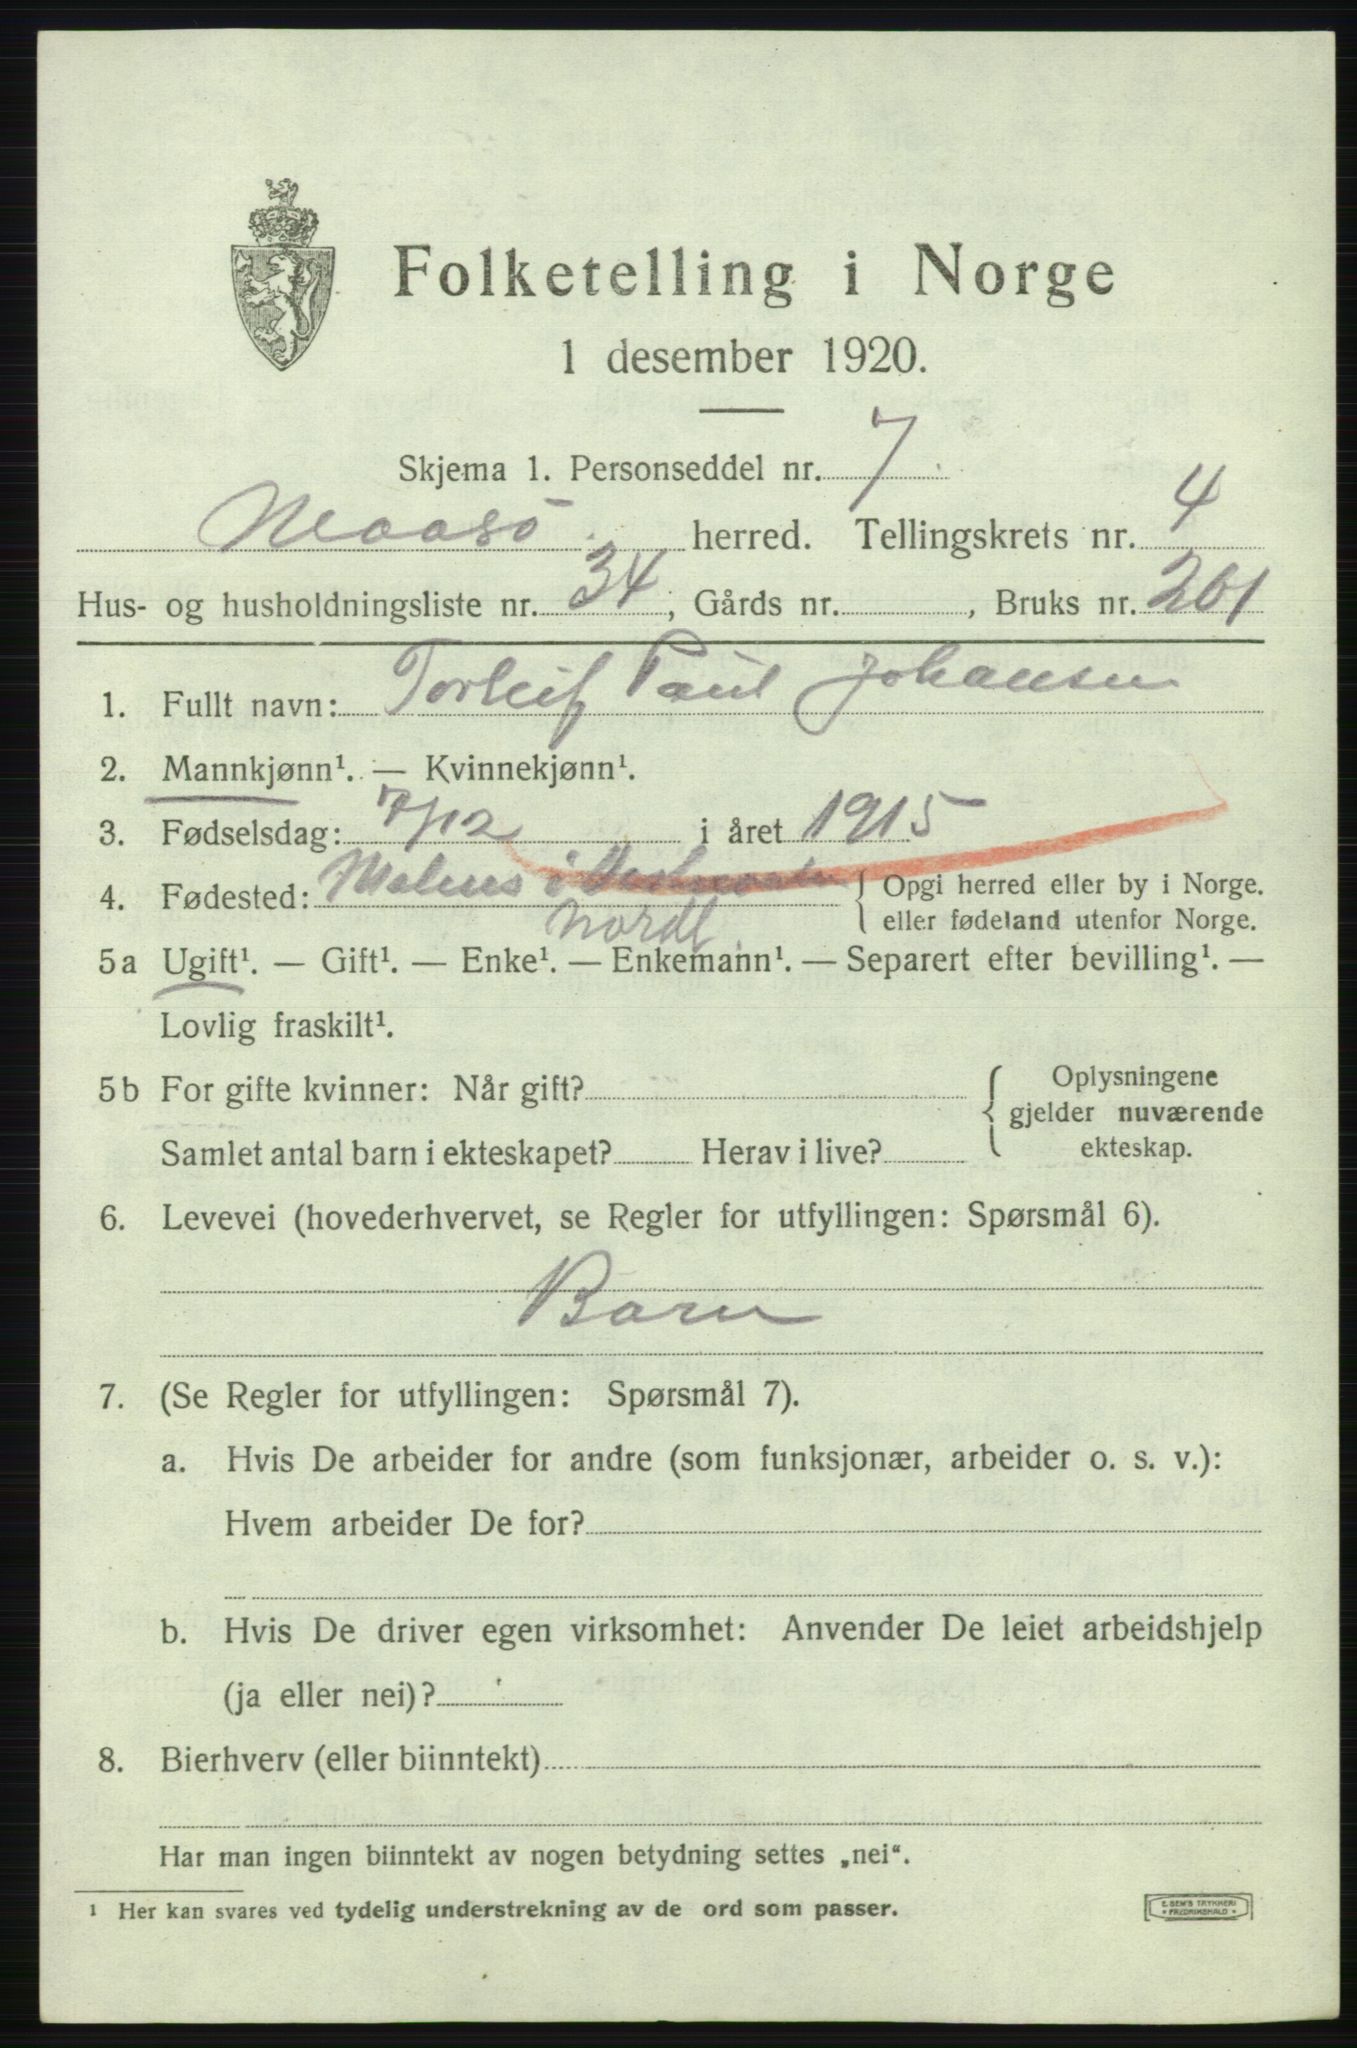 Folketelling i Norge
1 desember 1920.
Skjema 1. Personseddel nr. 7
Maasö herred. Tellingskrets nr. 4
Hus- og husholdningsliste nr. 34, Gårds nr. , Bruks nr. 201
1. Fullt navn: Torleif Paul Johansen
2. Mannkjønn¹. — Kvinnekjønn¹.
3. Fødselsdag: 7/12 i året 1915
4. Fødested: i { Opgi herred eller by i Norge.
eller fødeland utenfor Norge.
Nordl.
5a Ugift¹. — Gift¹. — Enke¹. — Enkemann¹. — Separert efter bevilling¹. —
Lovlig fraskilt¹.
5b For gifte kvinner: Når gift? { Oplysningene
gjelder nuværende
Samlet antal barn i ekteskapet? Herav i live? ekteskap.
6. Levevei (hovederhvervet, se Regler for utfyllingen: Spørsmål 6).
Barn
7. (Se Regler for utfyllingen: Spørsmål 7).
a. Hvis De arbeider for andre (som funksjonær, arbeider o. s. v.):
Hvem arbeider De for?
b. Hvis De driver egen virksomhet: Anvender De leiet arbeidshjelp
(ja eller nei)?
8. Bierhverv (eller biinntekt)
Har man ingen biinntekt av nogen betydning settes „nei“.
¹ Her kan svares ved tydelig understrekning av de ord som passer.
E. SEM'S TRYKKERI
• FREDRIKSHALD •